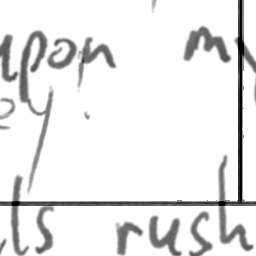 upon my
ey.
ls rush